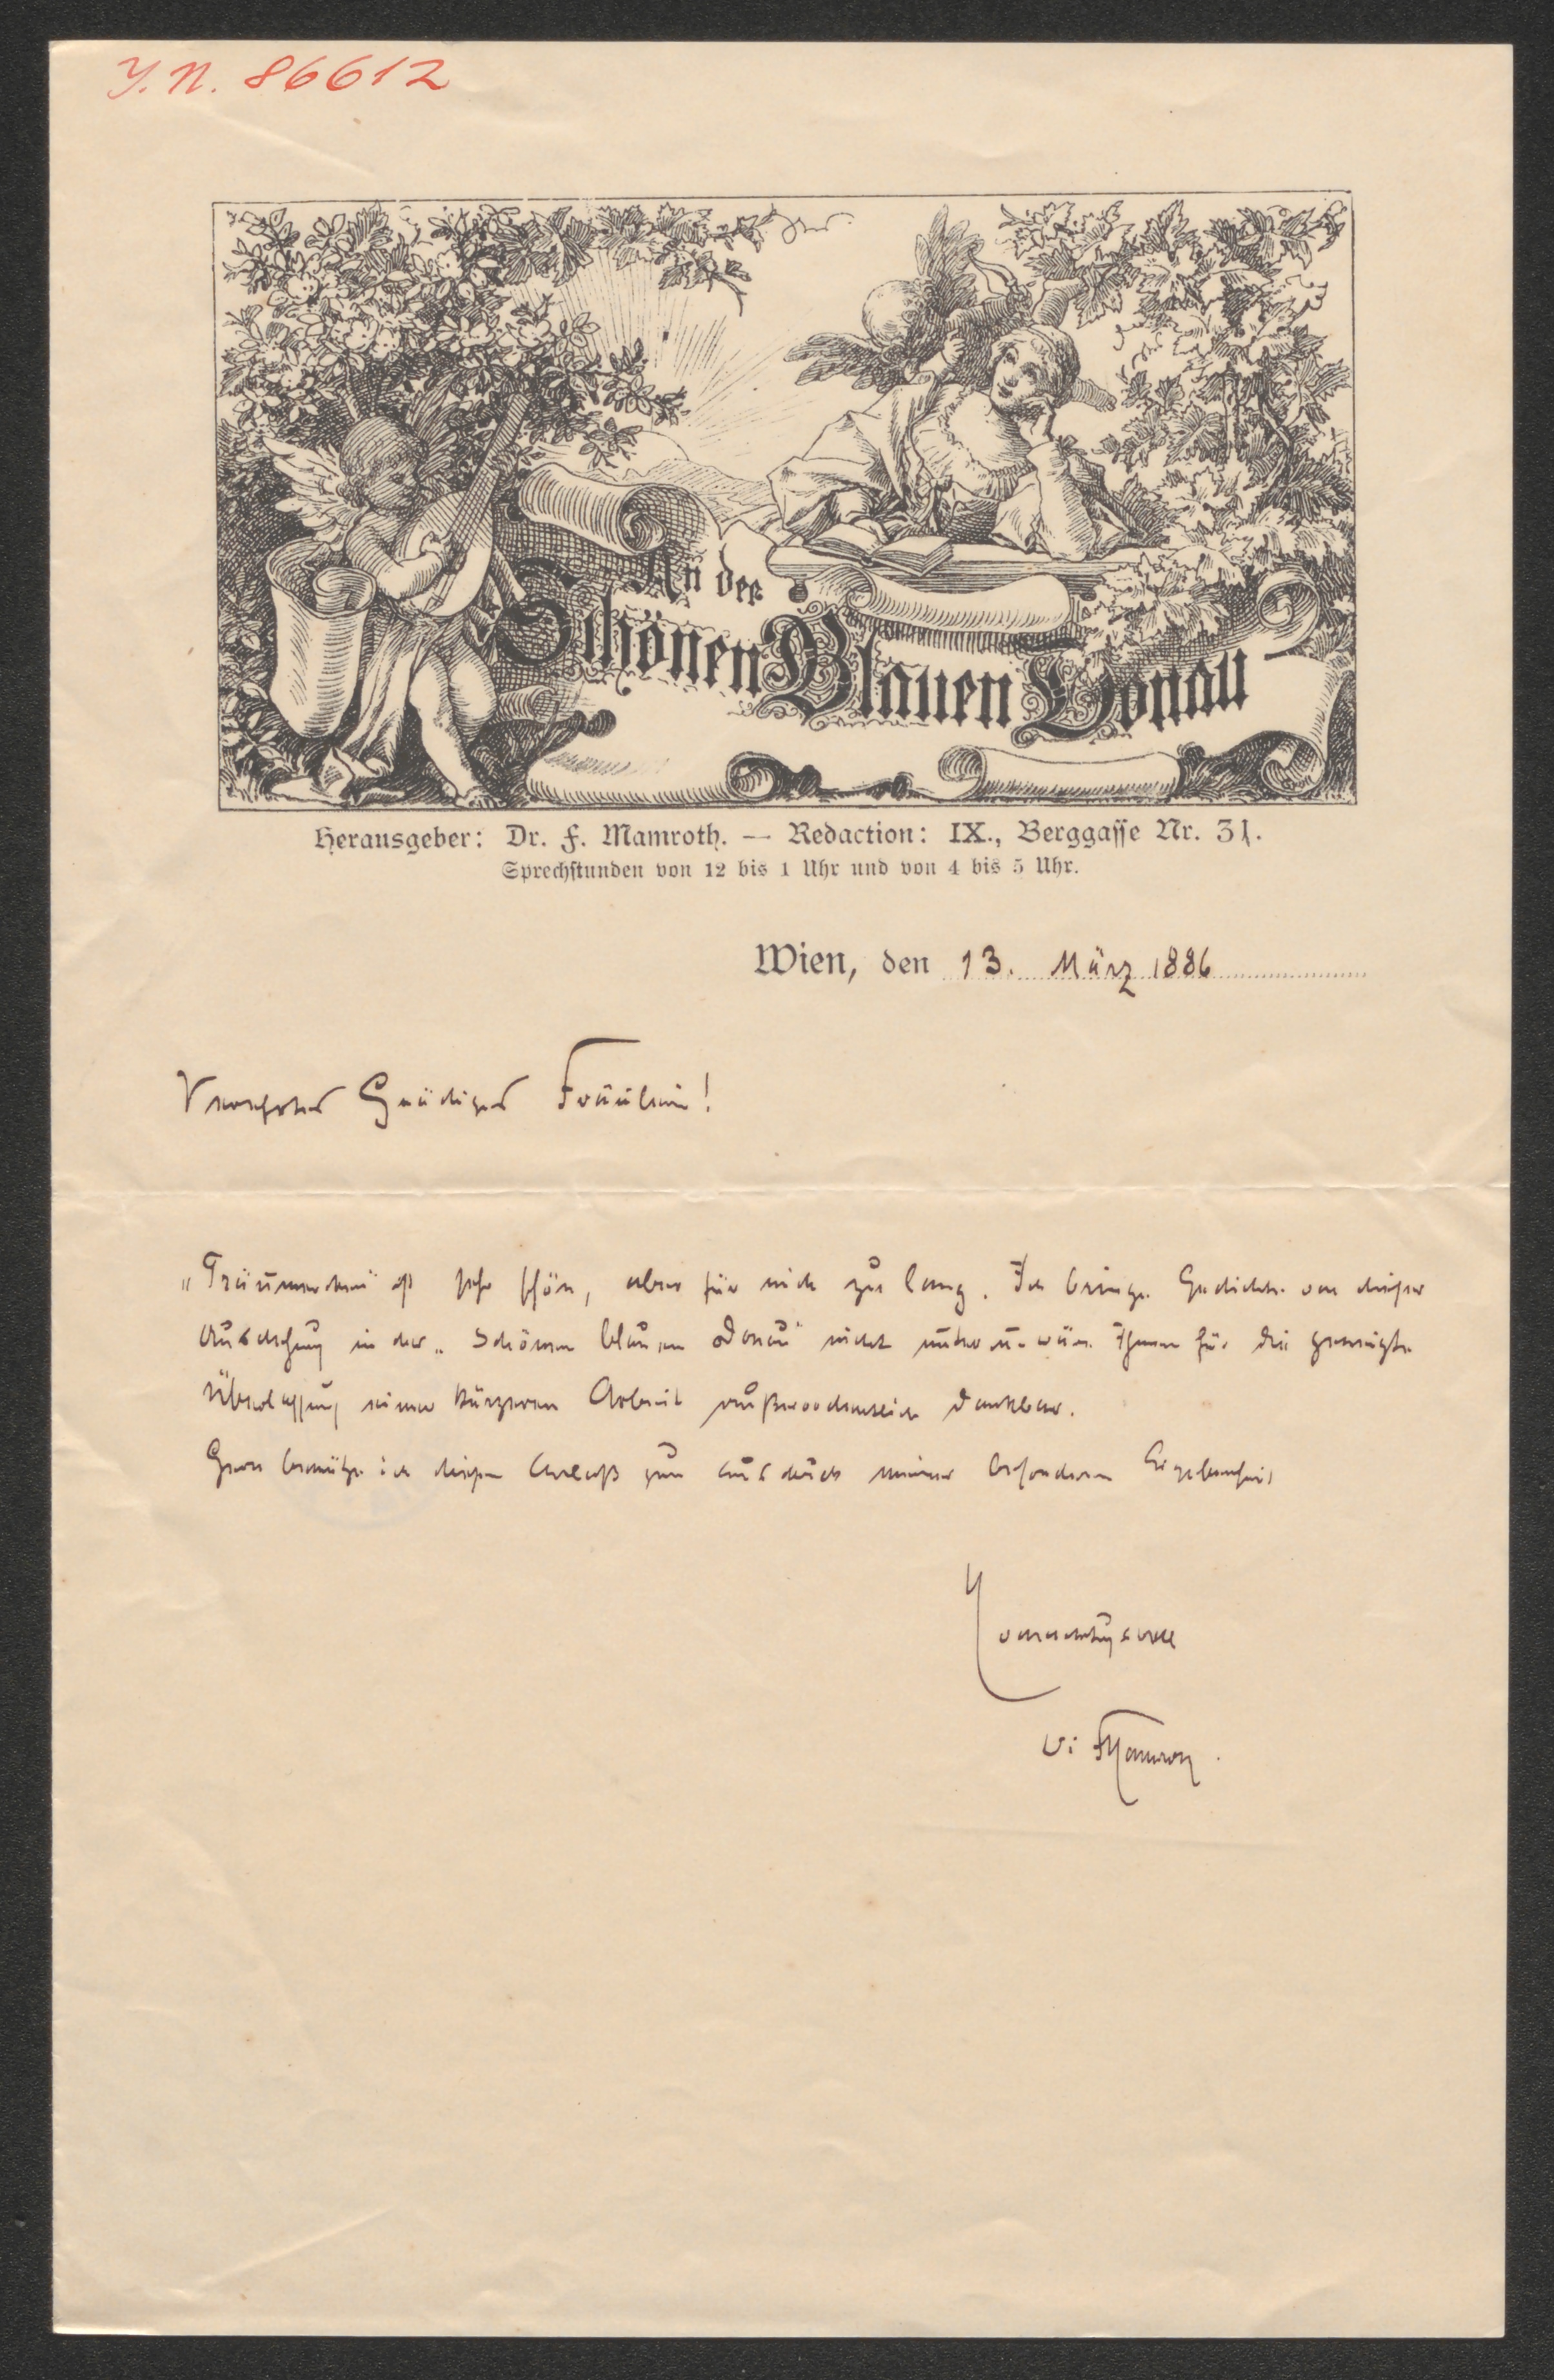 J.N. 86612
An der
Schönen Blauen Donau
Herausgeber: Dr. F. Mamroth. — Redaction: IX., Berggasse Nr. 31.
Sprechstunden von 12 bis 1 Uhr und von 4 bis 5 Uhr.
Wien, den 13. März 1886
Verehrtes Gnädiges Fräulein!
ist sehr schön, aber für mich zu lang. Ich bringe Gedichte von dieser
Ausdehnung in der „Schönen blauen Donau" nicht unter u. wäre Ihnen für die geneigte
Überlassung einer kürzeren Arbeit außerordentlich dankbar.
Gern benütze ich diesen Anlaß zum Ausdruck meiner besonderen Ergebenheit
Hochachtungsvoll
Dr FMamroth.